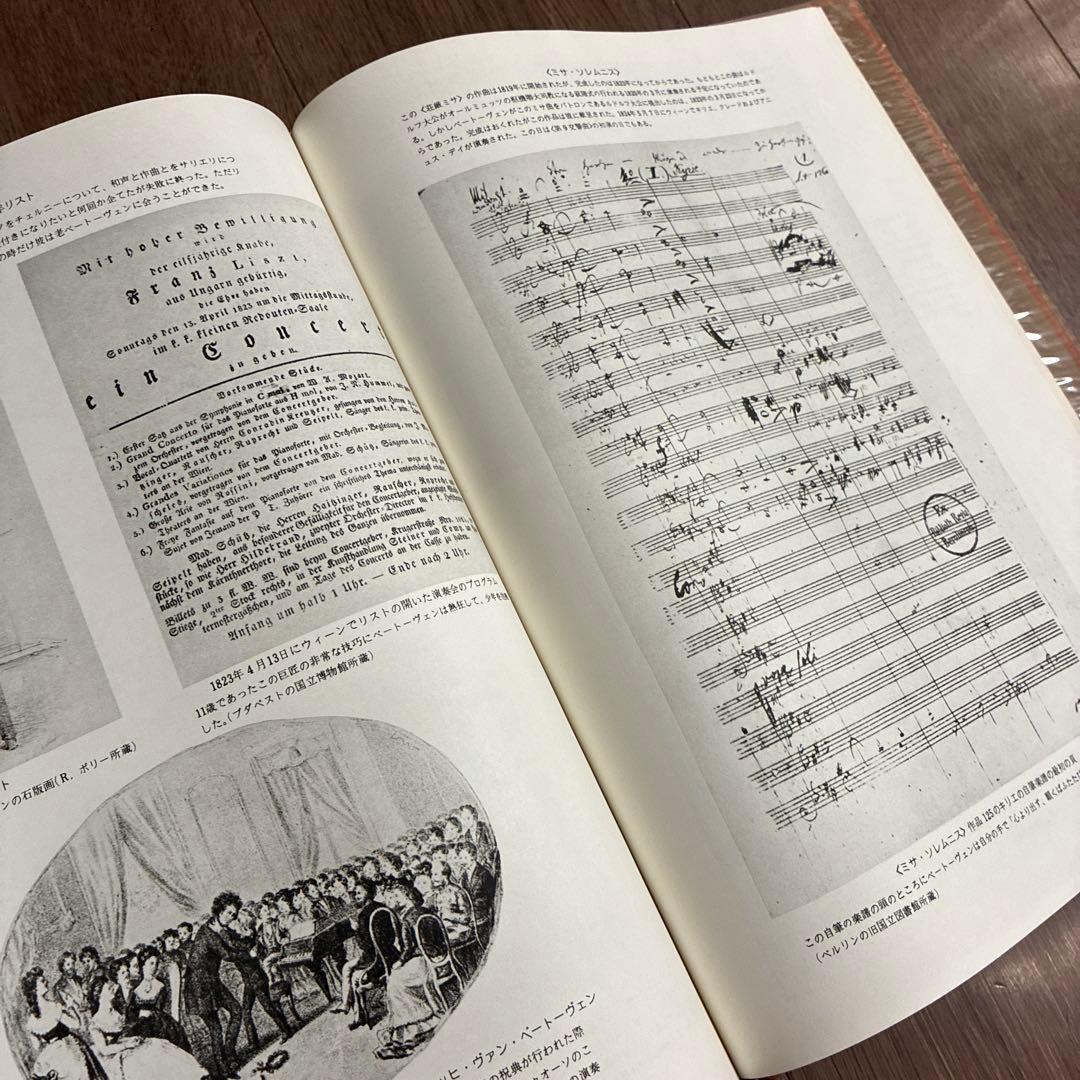 リスト
をチェルニーについて、和声と作曲とをサリエリにつ
付きになりたいと何回か企てたが失敗に終った。ただり
の時だけ彼は老ベートーヴェンに会うことができた。
Mit hoher Bewilligung
wird
der eilfjährige Knabe,
Franz Liszt,
aus Ungarn gebürtig,
die Ehre haben
Sonntags den 13. April 1823 um die Mittagsstunde,
im k. k. kleinen Redouten-Saale
ein Concert
zu geben.
Vorkommende Stücke.
1.) Erster Satz aus der Symphonie in C mol, von W. A. Mozart.
2.) Grand Concerto für das Pianoforte aus H mol, von J. N. Hummel, mit
zem Orchester, vorgetragen vom Concertgeber.
3.) Vocal-Quartett von Herrn Conradin Kreutzer, gesungen von den Herren
zinger, Rauscher, Ruprecht und Seipelt, Sänger des k. k.
ters an der Wien.
4.) Grandes Variationes für das Pianoforte, mit Orchester-Begleitung, von J.
scheles, vorgetragen von dem Concertgeber.
5.) Große Arie von Rossini, vorgetragen von Mad. Schütz, Sängerin des k.
Theaters an der Wien.
6.) Freye Fantasie auf dem Pianoforte von dem Concertgeber, wozu er
Sujet von Jemand der P. T. Zuhörer ein schriftliches Thema unterthänigst
Mad. Schütz, die Herren Haitzinger, Rauscher, Ruprecht
Seipelt haben, aus besonderer Gefälligkeit für den Concertgeber,
stücke, so wie Herr Hildebrand, zweyter Orchester-Director im k. k.
nächst dem Kärnthnerthore, die Leitung des Ganzen übernommen.
Billets zu 3 fl. W. W. sind beym Concertgeber, Krugerstraße Nro.
Stiege, 2ter Stock rechts, in der Kunsthandlung Steiner und Comp. im
ternostergäßchen, und am Tage des Concerts an der Casse zu haben.
Anfang um halb 1 Uhr. — Ende nach 2 Uhr.
1823年4月13日にウィーンでリストの開いた演奏会のプログラム
11歳であったこの巨匠の非常な技巧にベートーヴェンは熱狂して、少年を
した。(ブダペストの国立博物館所蔵)
スト
ンの石版画(R. ボリー所蔵)
ッヒ・ヴァン・ベートーヴェン
の祝典が行われた際
オーソのこ
の演奏
《ミサ・ソレムニス》
この《荘厳ミサ》の作曲は1819年に開始されたが、完成したのは1823年になってからであった。もともとこの曲はルド
ルフ大公がオールミュッツの枢機卿大司教になる叙階式の行われる1820年の3月に演奏される予定になっていたのであ
る。しかしベートーヴェンがこのミサ曲をパトロンであるルドルフ大公に提出したのは、1823年の3月23日になってか
らであった。完成はおくれたがこの作品は彼に献呈された。1824年5月7日にウィーンでキリエ、クレードおよびアニ
ュス・デイが演奏された。この日は《第9交響曲》の初演の日でもある。
Kyrie
《ミサ・ソレムニス》作品125のキリエの自筆楽譜の最初の頁
この自筆の楽譜の頭のところにベートーヴェンは自分の手で「心より出ず、願くばふたたび
(ベルリンの旧国立図書館所蔵)